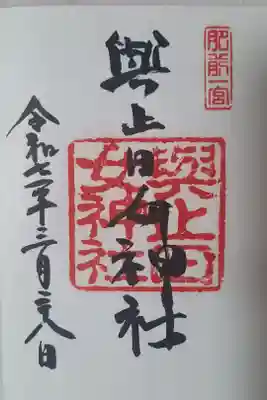 肥前一宮
與止日女神社
與止日
女神社
令和七年三月二八日